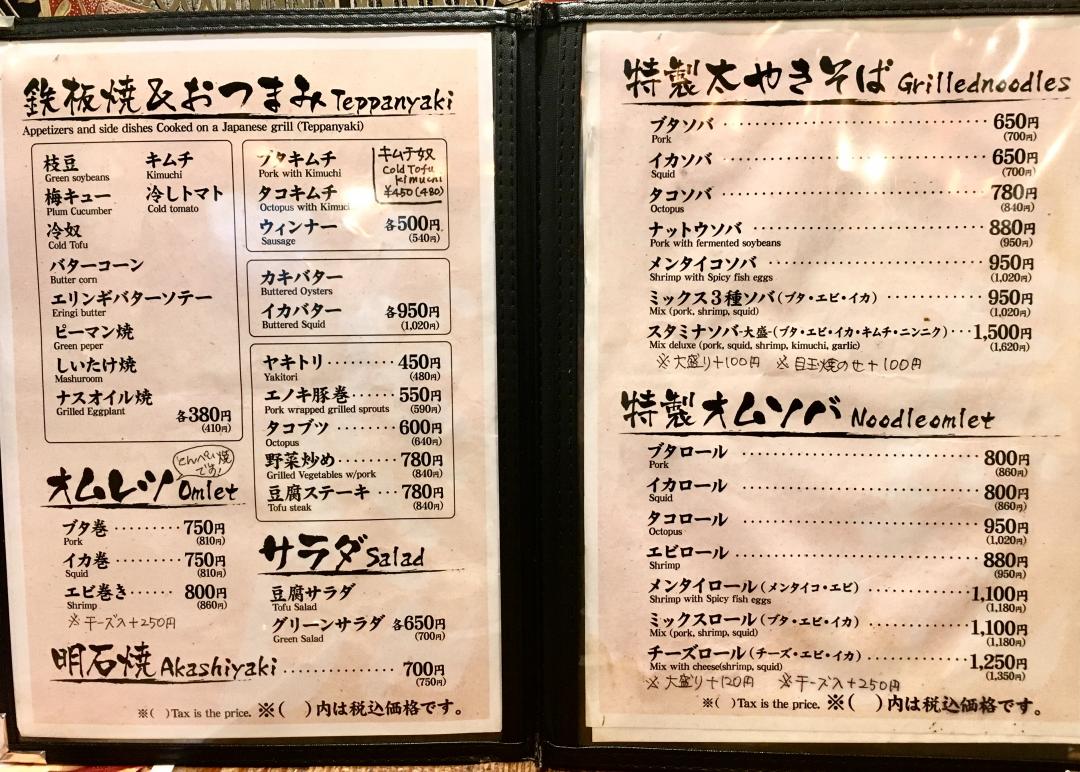 鉄板焼&おつまみ Teppanyaki
Appetizers and side dishes Cooked on a Japanese grill (Teppanyaki)
枝豆 キムチ
Green soybeans Kimuchi
梅キュー 冷しトマト
Plum Cucumber Cold tomato
冷奴
Cold Tofu
バターコーン
Butter corn
エリンギバターソテー
Eringi butter
ピーマン焼
Green peper
しいたけ焼
Mashuroom
ナスオイル焼
Grilled Eggplant
各380円
(410円)
ブタキムチ
Pork with Kimuchi
タコキムチ
Octopus with Kimuchi
ウィンナー 各500円
Sausage (540円)
キムチ奴
Cold Tofu
Kimuchi
¥450(480)
カキバター
Buttered Oysters
イカバター 各950円
Buttered Squid (1,020円)
ヤキトリ········450円
Yakitori (480円)
エノキ豚巻·····550円
Pork wrapped grilled sprouts (590円)
タコブツ········600円
Octopus (640円)
野菜炒め·······780円
Grilled Vegetables w/pork (840円)
豆腐ステーキ···780円
Tofu steak (840円)
オムレツ Omlet
とんぺい焼
です!
ブタ巻·········750円
Pork (810円)
イカ巻·········750円
Squid (810円)
エビ巻き······800円
Shrimp (860円)
※チーズ入+250円
サラダ Salad
豆腐サラダ
Tofu Salad
グリーンサラダ 各650円
Green Salad (700円)
明石焼 Akashiyaki··············700円
(750円)
※( )Tax is the price. ※( )内は税込価格です。
特製太やきそば Grillednoodles
ブタソバ······························650円
Pork (700円)
イカソバ······························650円
Squid (700円)
タコソバ······························780円
Octopus (840円)
ナットウソバ························880円
Pork with fermented soybeans (950円)
メンタイコソバ·····················950円
Shrimp with Spicy fish eggs (1,020円)
ミックス3種ソバ(ブタ・エビ・イカ)············950円
Mix (pork, shrimp, squid) (1,020円)
スタミナソバ-大盛-(ブタ・エビ・イカ・キムチ・ニンニク)···1,500円
Mix deluxe (pork, squid, shrimp, kimuchi, garlic) (1,620円)
※大盛り+100円 ※目玉焼のせ+100円
特製オムソバ Noodleomlet
ブタロール····························800円
Pork (860円)
イカロール····························800円
Squid (860円)
タコロール····························950円
Octopus (1,020円)
エビロール····························880円
Shrimp (950円)
メンタイロール(メンタイコ・エビ)············1,100円
Shrimp with Spicy fish eggs (1,180円)
ミックスロール(ブタ・エビ・イカ)············1,100円
Mix (pork, shrimp, squid) (1,180円)
チーズロール(チーズ・エビ・イカ)············1,250円
Mix with cheese(shrimp, squid) (1,350円)
※大盛り+120円 ※チーズ入+250円
※( )Tax is the price. ※( )内は税込価格です。